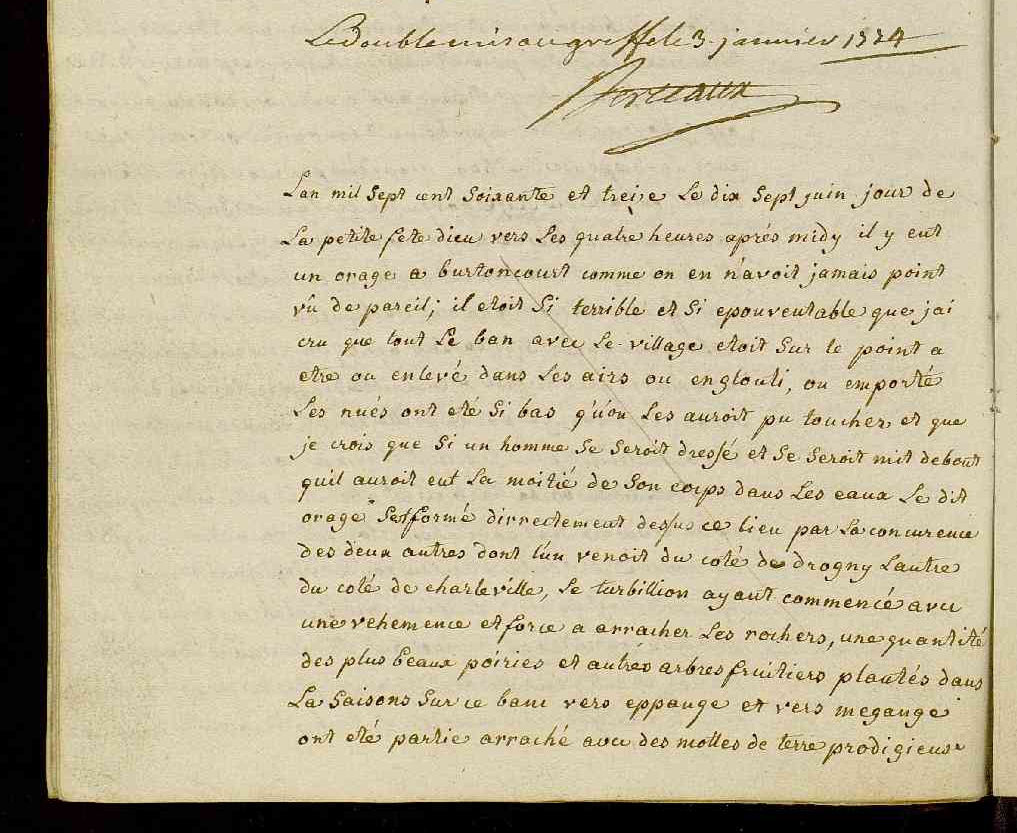 Le double mis au greffe le 3 janvier 1774
Lan mil sept cent soixante et treize Le dix sept juin jour de
La petite fete dieu vers Les quatre heures aprés midy il y eut
un orage a burtoncourt comme on en n'avoit jamais point
vû de pareil; il etoit si terrible et si epouventable que jai
cru que tout Le ban avec Le village etoit sur le point a
etre ou enlevé dans Les airs ou englouti, ou emporté
Les nués ont eté si bas qu'ou Les auroit pu toucher et que
je crois que si un homme se seroit dressé et se seroit mit debout
quil auroit eut La moitié de son corps dans Les eaux Le dit
orage sest formé dirrectement dessus ce lieu par La concurence
des deux autres dont l'un venoit du coté de drogny Lautre
du coté de charleville, Le turbillion ayant commencé avec
une vehemence et force a arracher Les rochers, une quantité
des plus beaux poiries et autres arbres fruitiers plantés dans
La saisons sur ce banc vers eppange et vers megange
ont eté partie arraché avec des mottes de terre prodigieuse